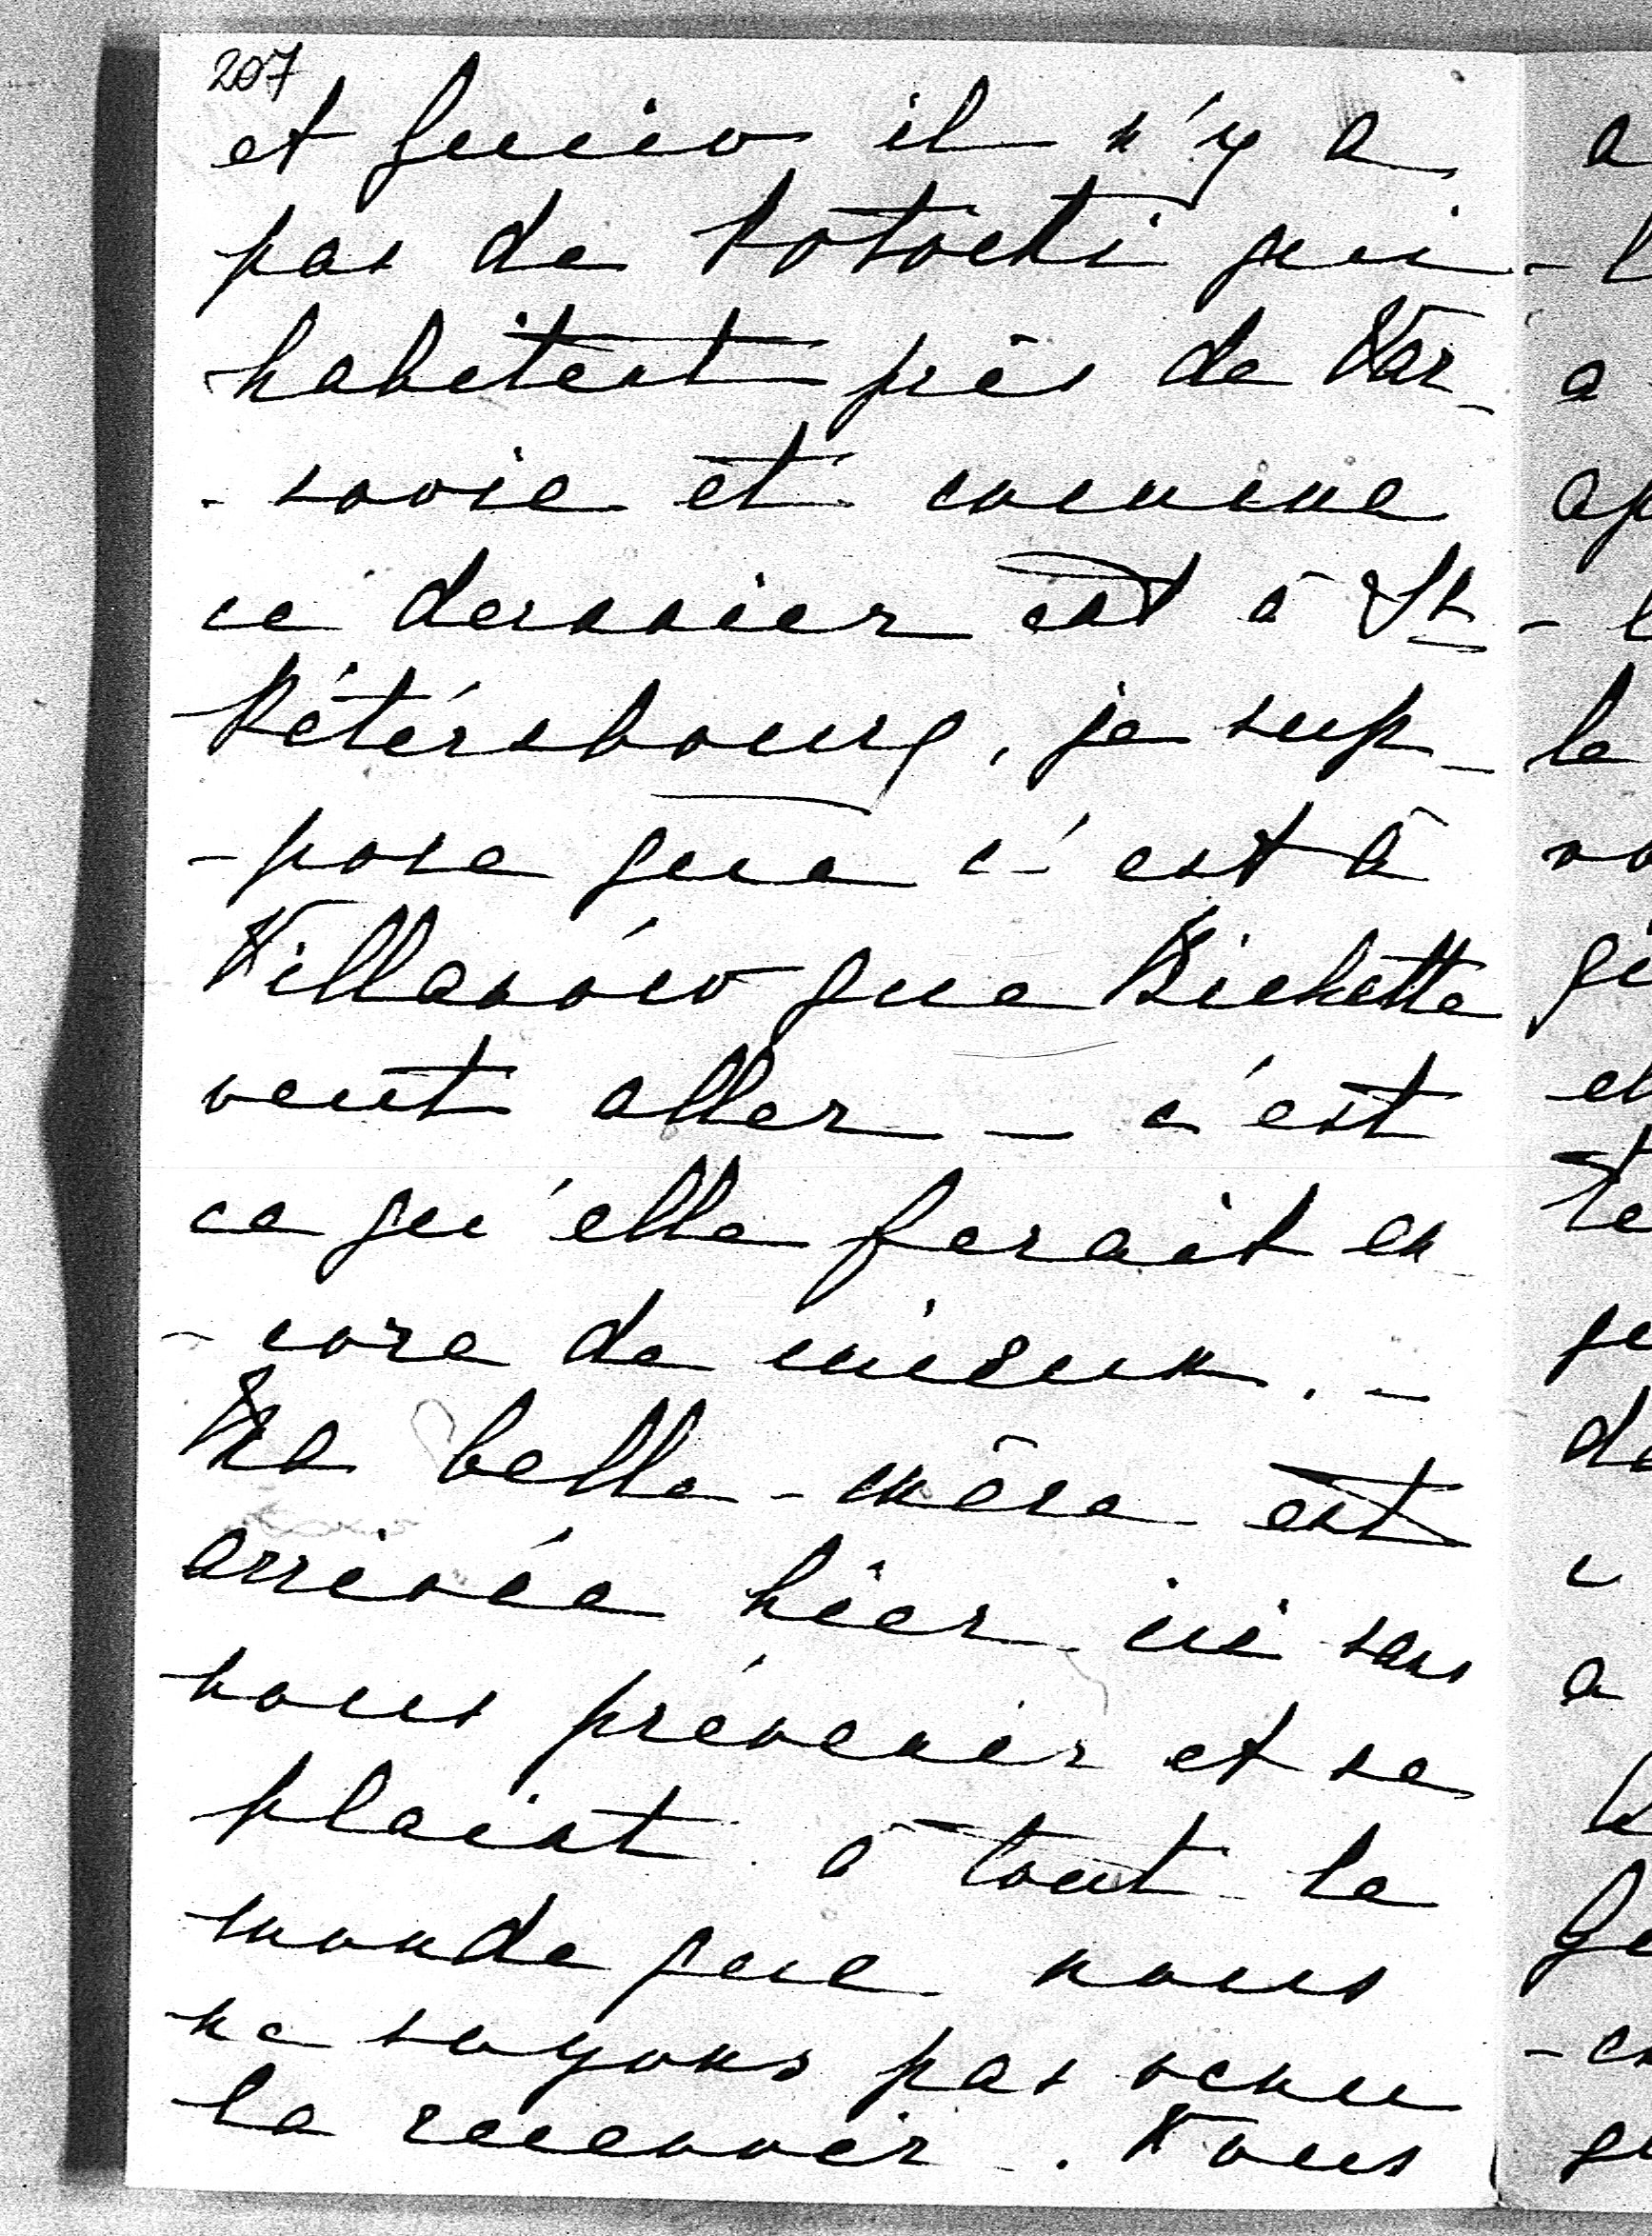 207
et Gucio il n'y a
pas de Potocki qui
habitent près de Var-
-sovie et comme
ce dernier est à St
Pétérsbourg, je sup-
-pose que c'est à
Villanów que Bichette
veut aller – c'est
ce qu'elle ferait en
-core de mieux. –
Ma belle-mère est
arrivée hier ici sans
nous prévenir et se
plaint à tout le
monde que nous
ne soyons pas venu
la recevoir. Vous